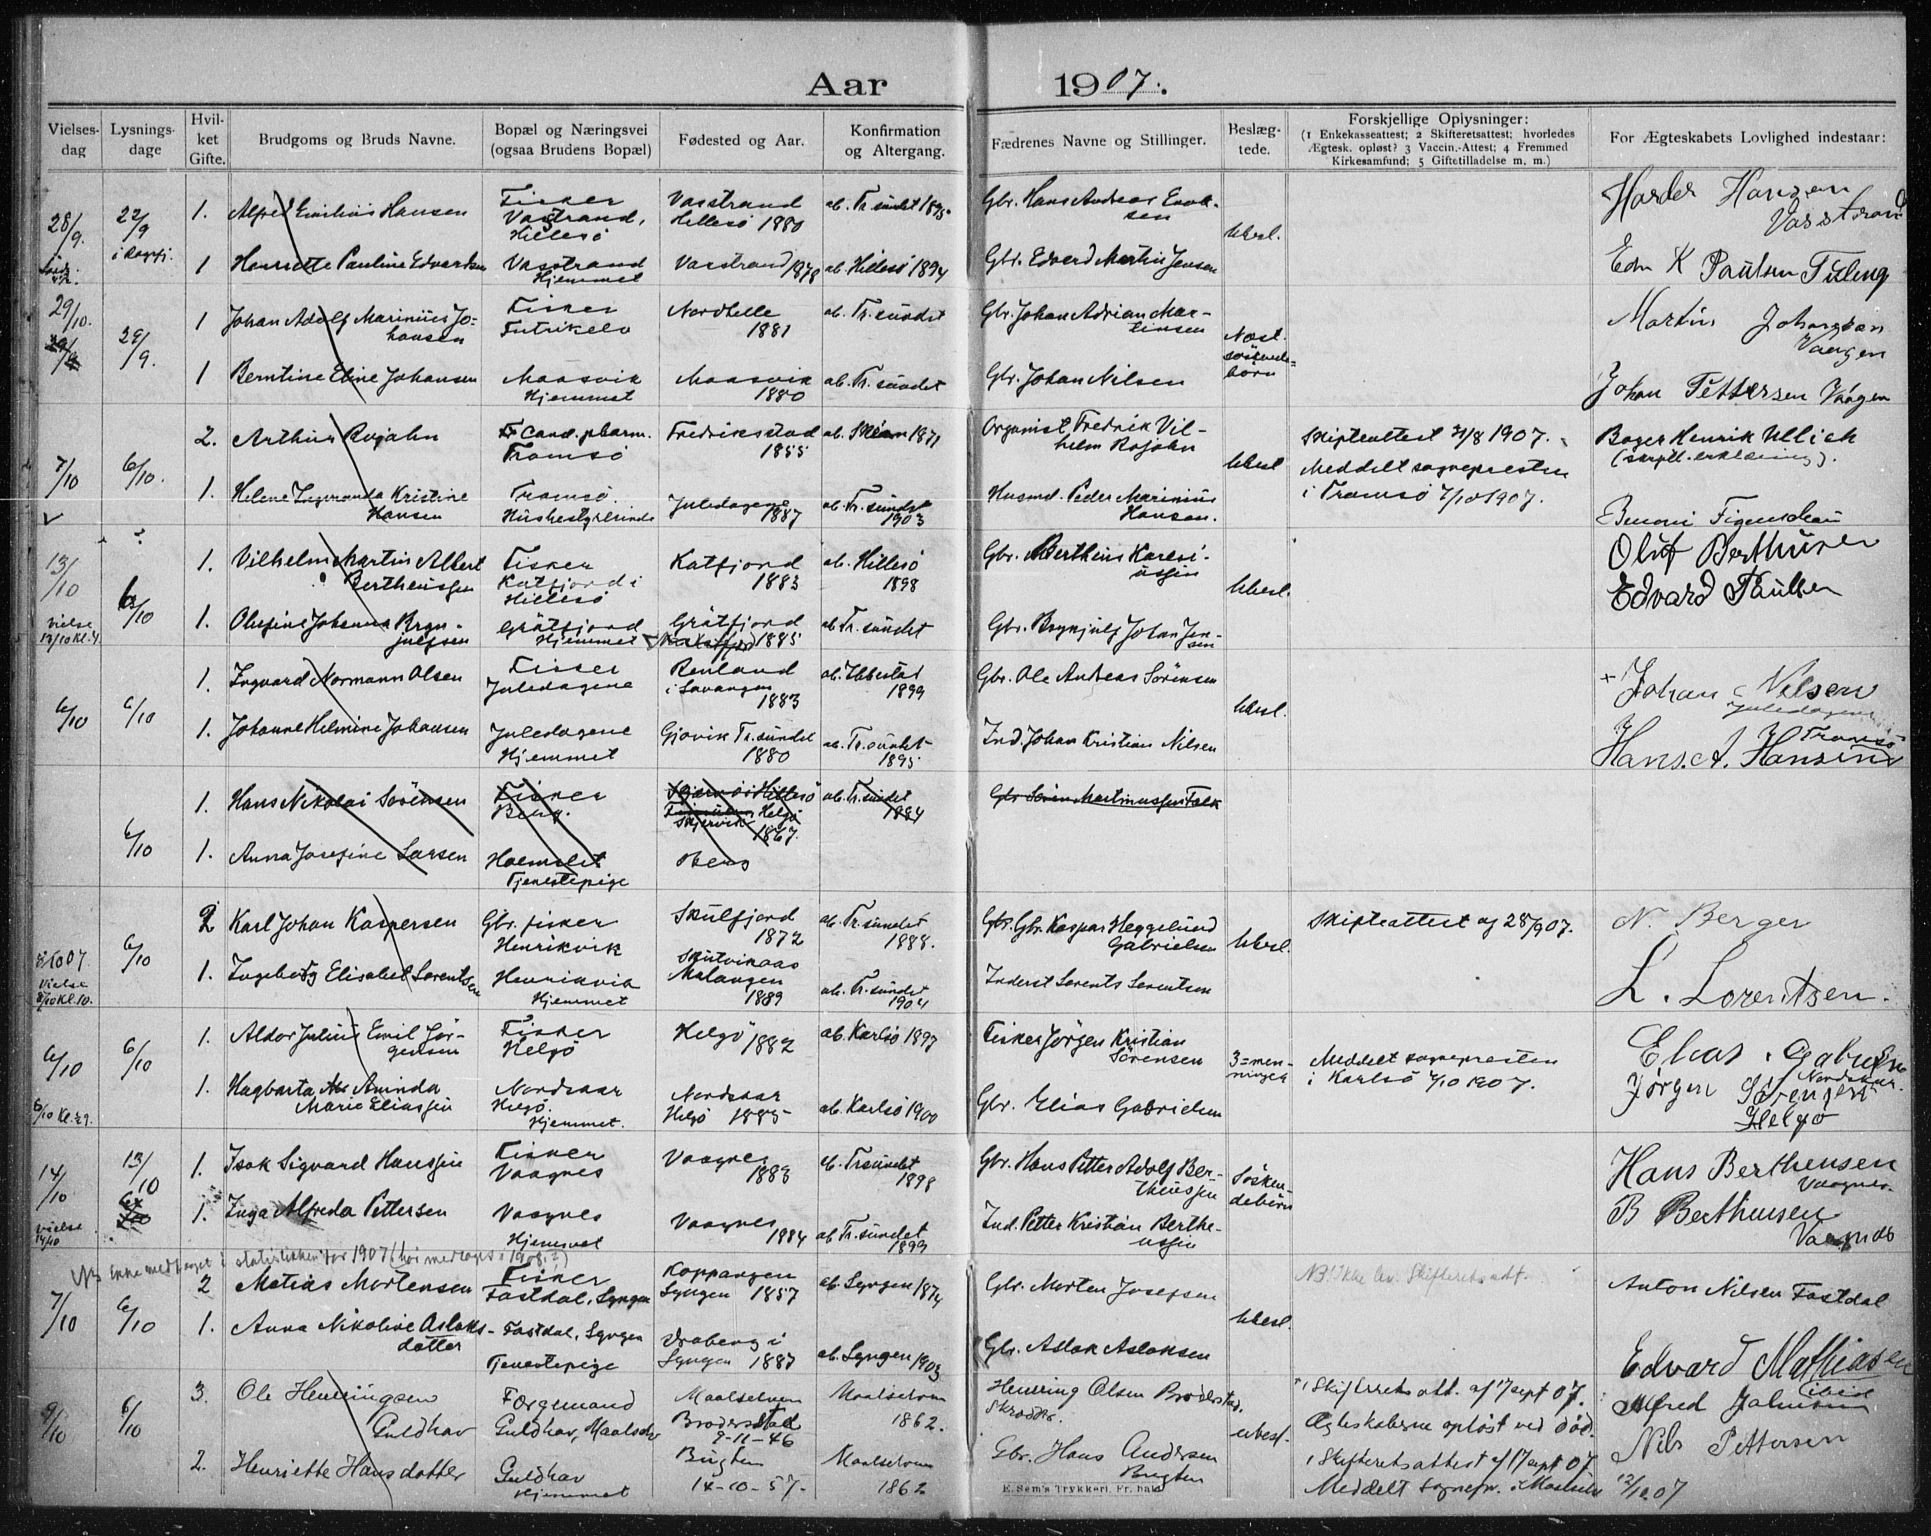 Aar 1907.
Vielses-dag
Lysnings-dage
Hvil-ket Gifte.
Brudgoms og Bruds Navne.
Bopæl og Næringsvei (ogsaa Brudens Bopæl)
Fødested og Aar.
Konfirmation og Altergang.
Fædrenes Navne og Stillinger.
Beslæg-tede.
Forskjellige Oplysninger: (1 Enkekasseattest; 2 Skifteretsattest; hvorledes Ægtesk. opløst? 3 Vaccin.-Attest; 4 Fremmed Kirkesamfund; 5 Giftetilladelse m. m.)
For Ægteskabets Lovlighed indestaar:
28/9. 22/9 1. Alfred Emilius Hansen Fisker Vasstrand, Hillesö Vasstrand Hillesö 1880 ab. Tr.sundet 1895. Gbr. Hans Andreas Enoksen Ubesl. Harder Hansen Vasstrand
1 Henriette Pauline Edvardsen Vasstrand Hjemmet Vasstrand 1878 ab. Hillesö 1894 Gbr. Edvard Martin Jensen Edv K Paulsen
29/10. 29/9. 1 Johan Adolf Marinius Johansen Fisker Futrikelv 1881 ab. Tr.sundet Gbr. Johan Adrian Martinsen Næstsøskendebörn Martin Johansen Vaagen
1 Berntine Eline Johansen Maasvik Hjemmet Maasvik 1880 ab. Tr.sundet Gbr. Johan Nilsen Johan Pettersen Vaagen
7/10 6/10. 2. Arthur Rojahn Cand. pharm. Tromsö Fredriksstad 1855 ab. Skien 1871 Organist Fredrik Vilhelm Rojahn Ubesl Skifteattest 31/8 1907. Bager Henrik Ullich (skriftl. erklæring).
1. Helene Ingvanda Kristine Hansen Tromsö. Husbestyrerinde Juledagene 1887 ab. Tr.sundet 1903 Husmd. Peder Marinius Hansen. Meddelt sognepresten i Tromsö 7/10 1907. Benoni Figenschau
13/10 6/10 1. Vilhelm Martin Albert Bertheussen Fisker Katfjord i Hillesö Katfjord 1883 ab. Hillesö 1898 Gbr. Bertheus Kareliussen Ubesl. Oluf Berthusen
vielse 13/10 Kl. 4. 1. Olufine Johanna Brynjulfsen Gråtfjord Hjemmet Gråtfjord 1885 ab. Tr.sundet Gbr. Brynjulf Johan Jensen Edvard Paulsen
6/10 6/10 1. Ingvard Normann Olsen Fisker Juledagene Renland i Lavangen 1883 ab. Ibbestad 1899 Gbr. Ole Andreas Sörensen Ubesl. + Johan Nilsen Juledagene
1. Johanne Helmine Johansen Juledagene Hjemmet Gjøvik Tr.sundet 1880 ab. Tr.sundet 1895 Ind. Johan Kristian Nilsen Hans. A. Hansen Tromsö
6/10 1. Hans Nikolai Sörensen Fisker Berg. Helgö 1867. ab. Tr.sundet 1884 Gbr Sören Martinussen Falk
1. Anna Josefine Larsen Holmslet Tjenestepige Berg
6/10 2 Karl Johan Kaspersen Gbr. fisker Henrikvik Skulfjord 1872 ab. Tr.sundet 1888. Gbr. Kaspar Heggelund Gabrielsen Ubesl. Skifteattest af 28/9 07. N. Berger
Vielse Kl. 10. 1. Ingeborg Elisabet Lorentsen Henrikvik Hjemmet Malangen 1889 ab. Tr.sundet 1904 Inderst Lorents Lorentsen L. Lorentsen.
6/10 6/10 1. Aldor Julius Emil Jörgensen Fisker Helgö Helgö 1882 ab. Karlsö 1897 Fisker Jörgen Kristian Sörensen 3=menninger Meddelt sognepresten i Karlsö 7/10 1907. Elias Gabrielsen Nordskar.
1. Hagbarta Aminda Marie Eliassen Nordskar Helgö. Hjemmet. Nordskar Helgö 1885 ab. Karlsö 1900 Gbr. Elias Gabrielsen Jørgen Sørensen Helgö
14/10 13/10 1. Isak Sigvard Hanssen Fisker Vaagnes Vaagnes 1883 ab. Tr.sundet 1898 Gbr. Hans Petter Adolf Bertheussen Søskendebörn Hans Bertheusen Vaagnes.
vielse 14/10 1. Inga Alfreda Pettersen Vaagnes Hjemmet Vaagnes 1884 ab. Tr.sundet 1899 Ind. Petter Kristian Bertheussen B Bertheusen Vaagnes
7/10 6/10 2 Matias Mortensen Fisker Fastdal, Lyngen Koppangen Lyngen 1857 ab. Lyngen 1874 Gbr. Morten Josefsen Ubesl. Anton Nilsen Fastdal
1. Anna Nikoline Aslaksdatter Fastdal, Lyngen Tjenestepige Lyngen 1887 ab. Lyngen 1903 Gbr. Aslak Aslaksen Edvard Mathiasen ibid
9/10 6/10 3. Ole Henningsen Guldhav Forgemand Guldhav, Maalselv Maalselven Brodersstad 9-11-46 Maalselven 1862. Henning Olsen Brodersstad. Skrædder. ubesl. Skifteretsatt. af 17 sept 07. Ægteskaberne opløst ved død. Alfred Jakobsen
2. Henriette Hansdatter Guldhav Hjemmet Bugten 14-10-57- Maalselven 1862 Gbr. Hans Andersen Bugten Skifteretsattest af 17 sept 07 Nils Pettersen
Meddelt sognepr. i Maalselv 12/10 07
E. Sem's Trykkeri, Fr. hald